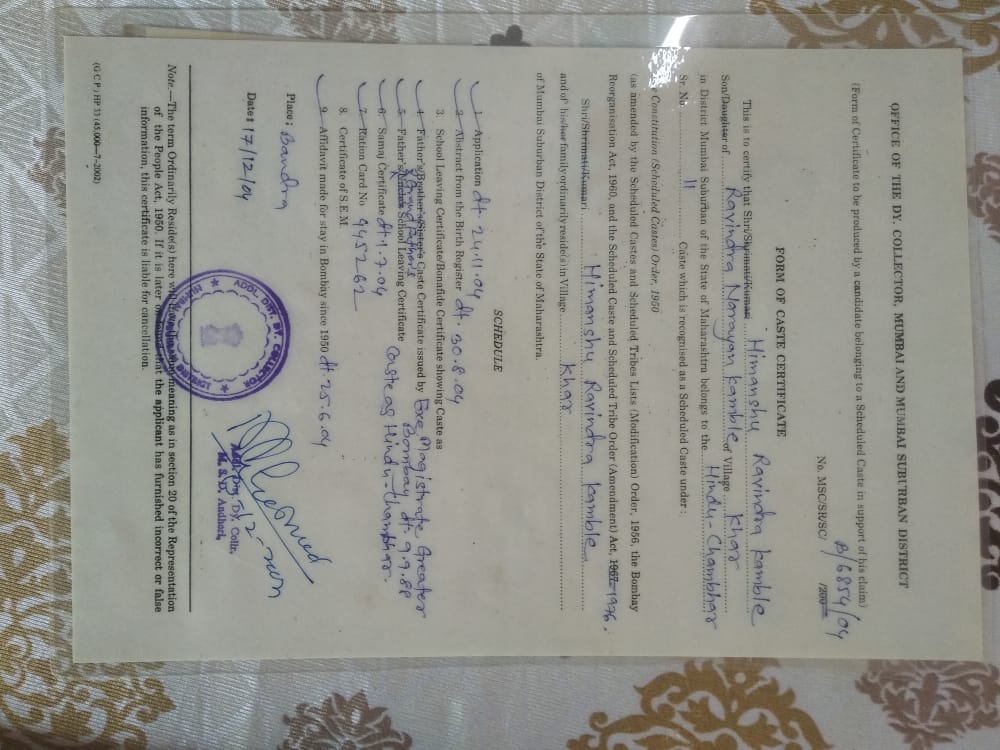 OFFICE OF THE DY. COLLECTOR, MUMBAI AND MUMBAI SUBURBAN DISTRICT
(Form of Certificate to be produced by a candidate belonging to a Scheduled Caste in support of his claim)
B/6854/04
No. MSC/SR/SC/ /200
FORM OF CASTE CERTIFICATE
This is to certify that Shri/Shrimati/Kumari Himanshu Ravindra Kamble
Son/Daughter of Ravindra Narayan Kamble of Village Khar
in District Mumbai Suburban of the State of Maharashtra belongs to the Hindu-Chambhar
Sr. No. 11 Caste which is recognised as a Scheduled Caste under :
Constitution (Scheduled Castes) Order, 1950
(as amended by the Scheduled Castes and Scheduled Tribes Lists (Modification) Order, 1956, the Bombay
Reorganisation Act, 1960, and the Scheduled Caste and Scheduled Tribe Order (Amendment) Act, 1967 1976.
Shri/Shrimati/Kumari Himanshu Ravindra Kamble
and of his/her family ordinarily reside(s) in Village Khar
of Mumbai Suburban District of the State of Maharashtra.
SCHEDULE
1. Application dt. 24.11.04
2. Abstract from the Birth Register dt. 30.8.04
3. School Leaving Certificate/Bonafide Certificate showing Caste as
4. Father's/Brother's/Sister's Caste Certificate issued by Exe Magistrate Greater
Bombay dt. 9.9.88
Grand Father's
5. Father's/Uncle's School Leaving Certificate Caste as Hindu-Chambhar.
6. Samaj Certificate dt 1.7.04
7. Ration Card No 945262
8. Certificate of S.E.M.
9. Affidavit made for stay in Bombay since 1950 dt. 25.6.04
Place : Bandra
Date : 17/12/04
ADDL. DIST. DY. COLLECTOR
MUMBAI SUBURBAN DISTRICT
Addl. Dist. Dy. Collr.
M. S. D. Andheri.
Note.—The term Ordinarily Reside(s) here will have the same meaning as in section 20 of the Representation
of the People Act, 1950. If it is later on found that the applicant has furnished incorrect or false
information, this certificate is liable for cancellation.
(G C P ) HP 33 (45,000—7-2002)